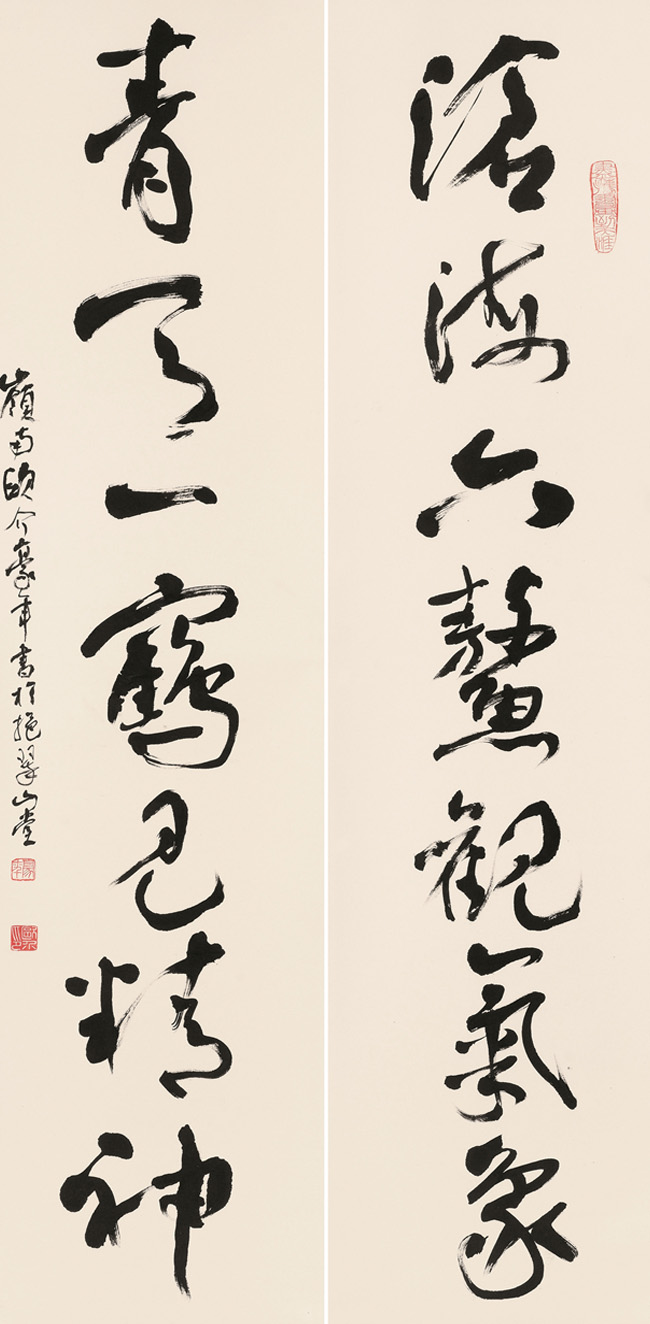 滄海六鰲觀氣象
青天一鶴見精神
嶺南歐介豪年書於挹翠山堂